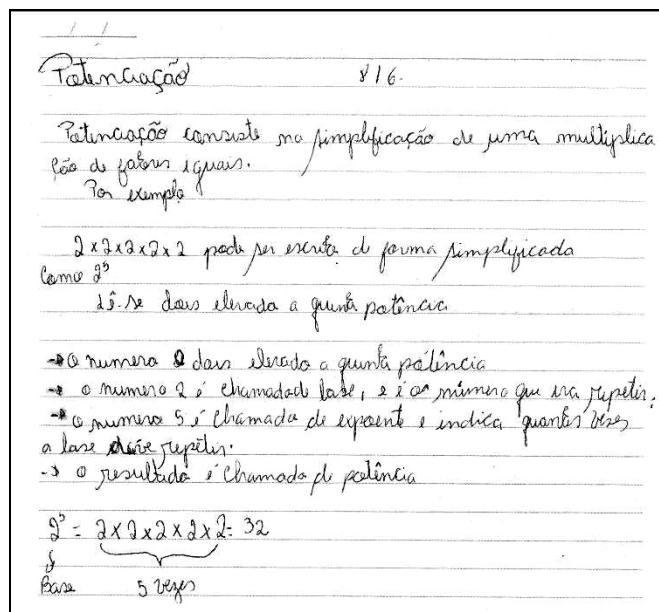 / /
Potenciação 816.
Potenciação consiste na simplificação de uma multiplica
ção de fatores iguais.
Por exemplo
2 x 2 x 2 x 2 x 2 pode ser escrita d forma simplificada
Como 2⁵
lê-se dois elevado a quinta potência
→ o numero dois elevado a quinta potência
→ o numero 2 é chamado de base, e é o número que ira repetir.
→ o numero 5 é chamado de expoente e indica quantas vezes
a base deve repetir.
→ o resultado é chamado de potência
2⁵ = 2 x 2 x 2 x 2 x 2 = 32
↓
Base 5 vezes